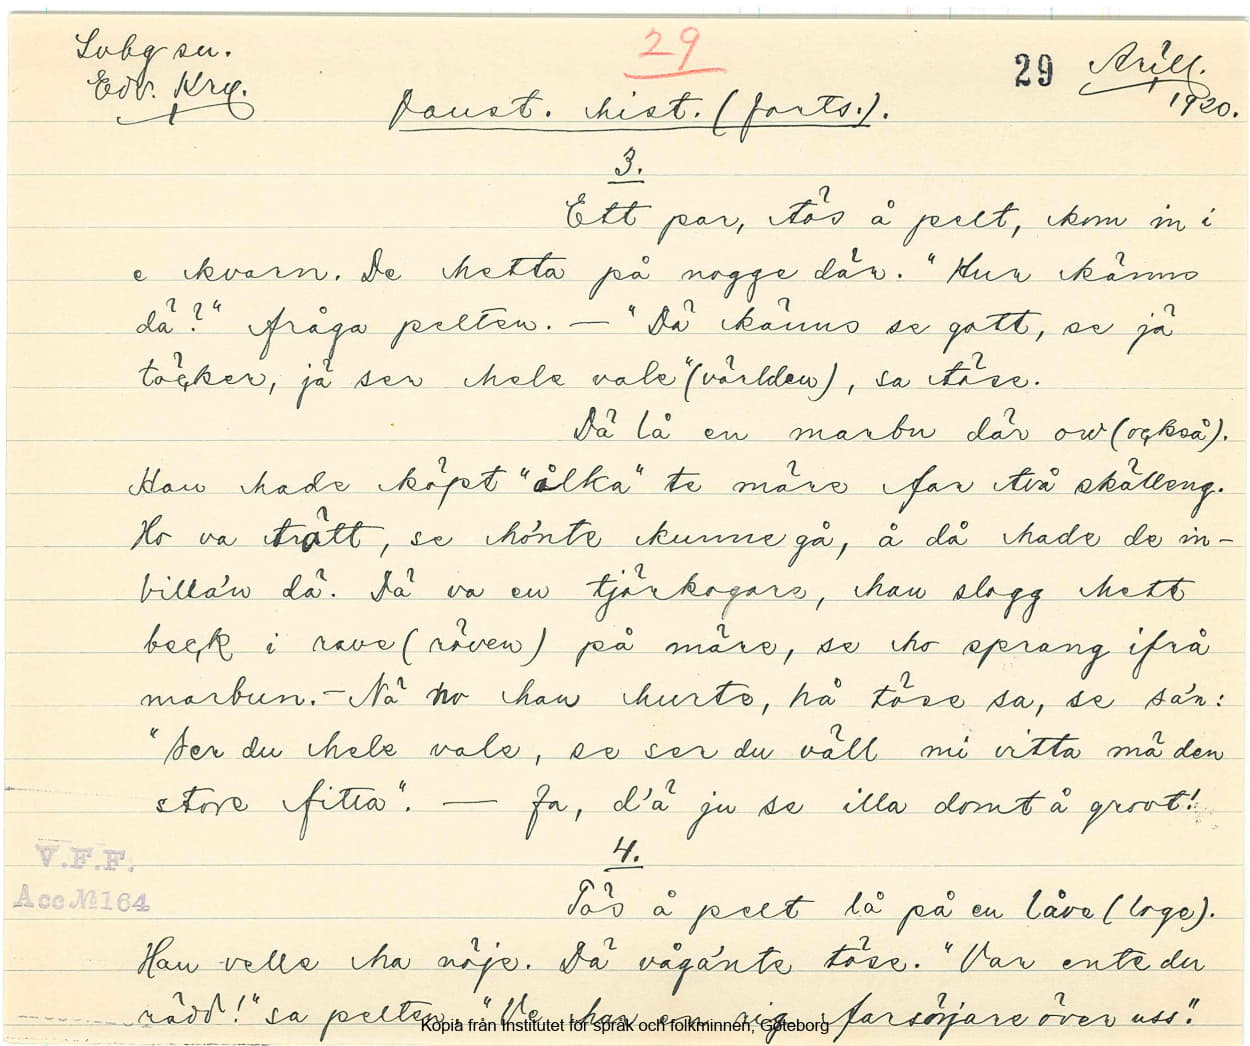 Svbg sn.
Edv. Krg.
29
29
April.
1920.
Joust. hist. (forts.).
3.
Ett par, tös å pelt, kom in i
e kvarn. De hetta på nogge där. "Hur känns
dä?" fråga pelten. — "Dä känns se gott, se jä
töçker, jä ser hele vale" (världen), sa töse.
Dä lå en marbu där ow (oçkså).
Han hade köpt "ålka" te märe far två skälleng.
Ho va trött, se hónte kunne gå, å då hade de in-
billa'n dä. Dä va en tjärkogare, han slogg hett
beçk i rave (röven) på märe, se ho sprang ifrå
marbun. – Nä no han hurte, hå töse sa, se sa'n:
"Ser du hele vale, se ser du väll mi vitta mä den
store fitta". — Ja, d'ä ju se illa domt å groot!
4.
V.F.F.
Acc. № 164
Tös å pelt lå på en låve (loge).
Han velle ha nöje. Dä våga'nte töse. "Var ente du
rädd!" sa pelten. "Ve har en rig farsörjare över uss."
Kopia från Institutet för språk och folkminnen, Göteborg